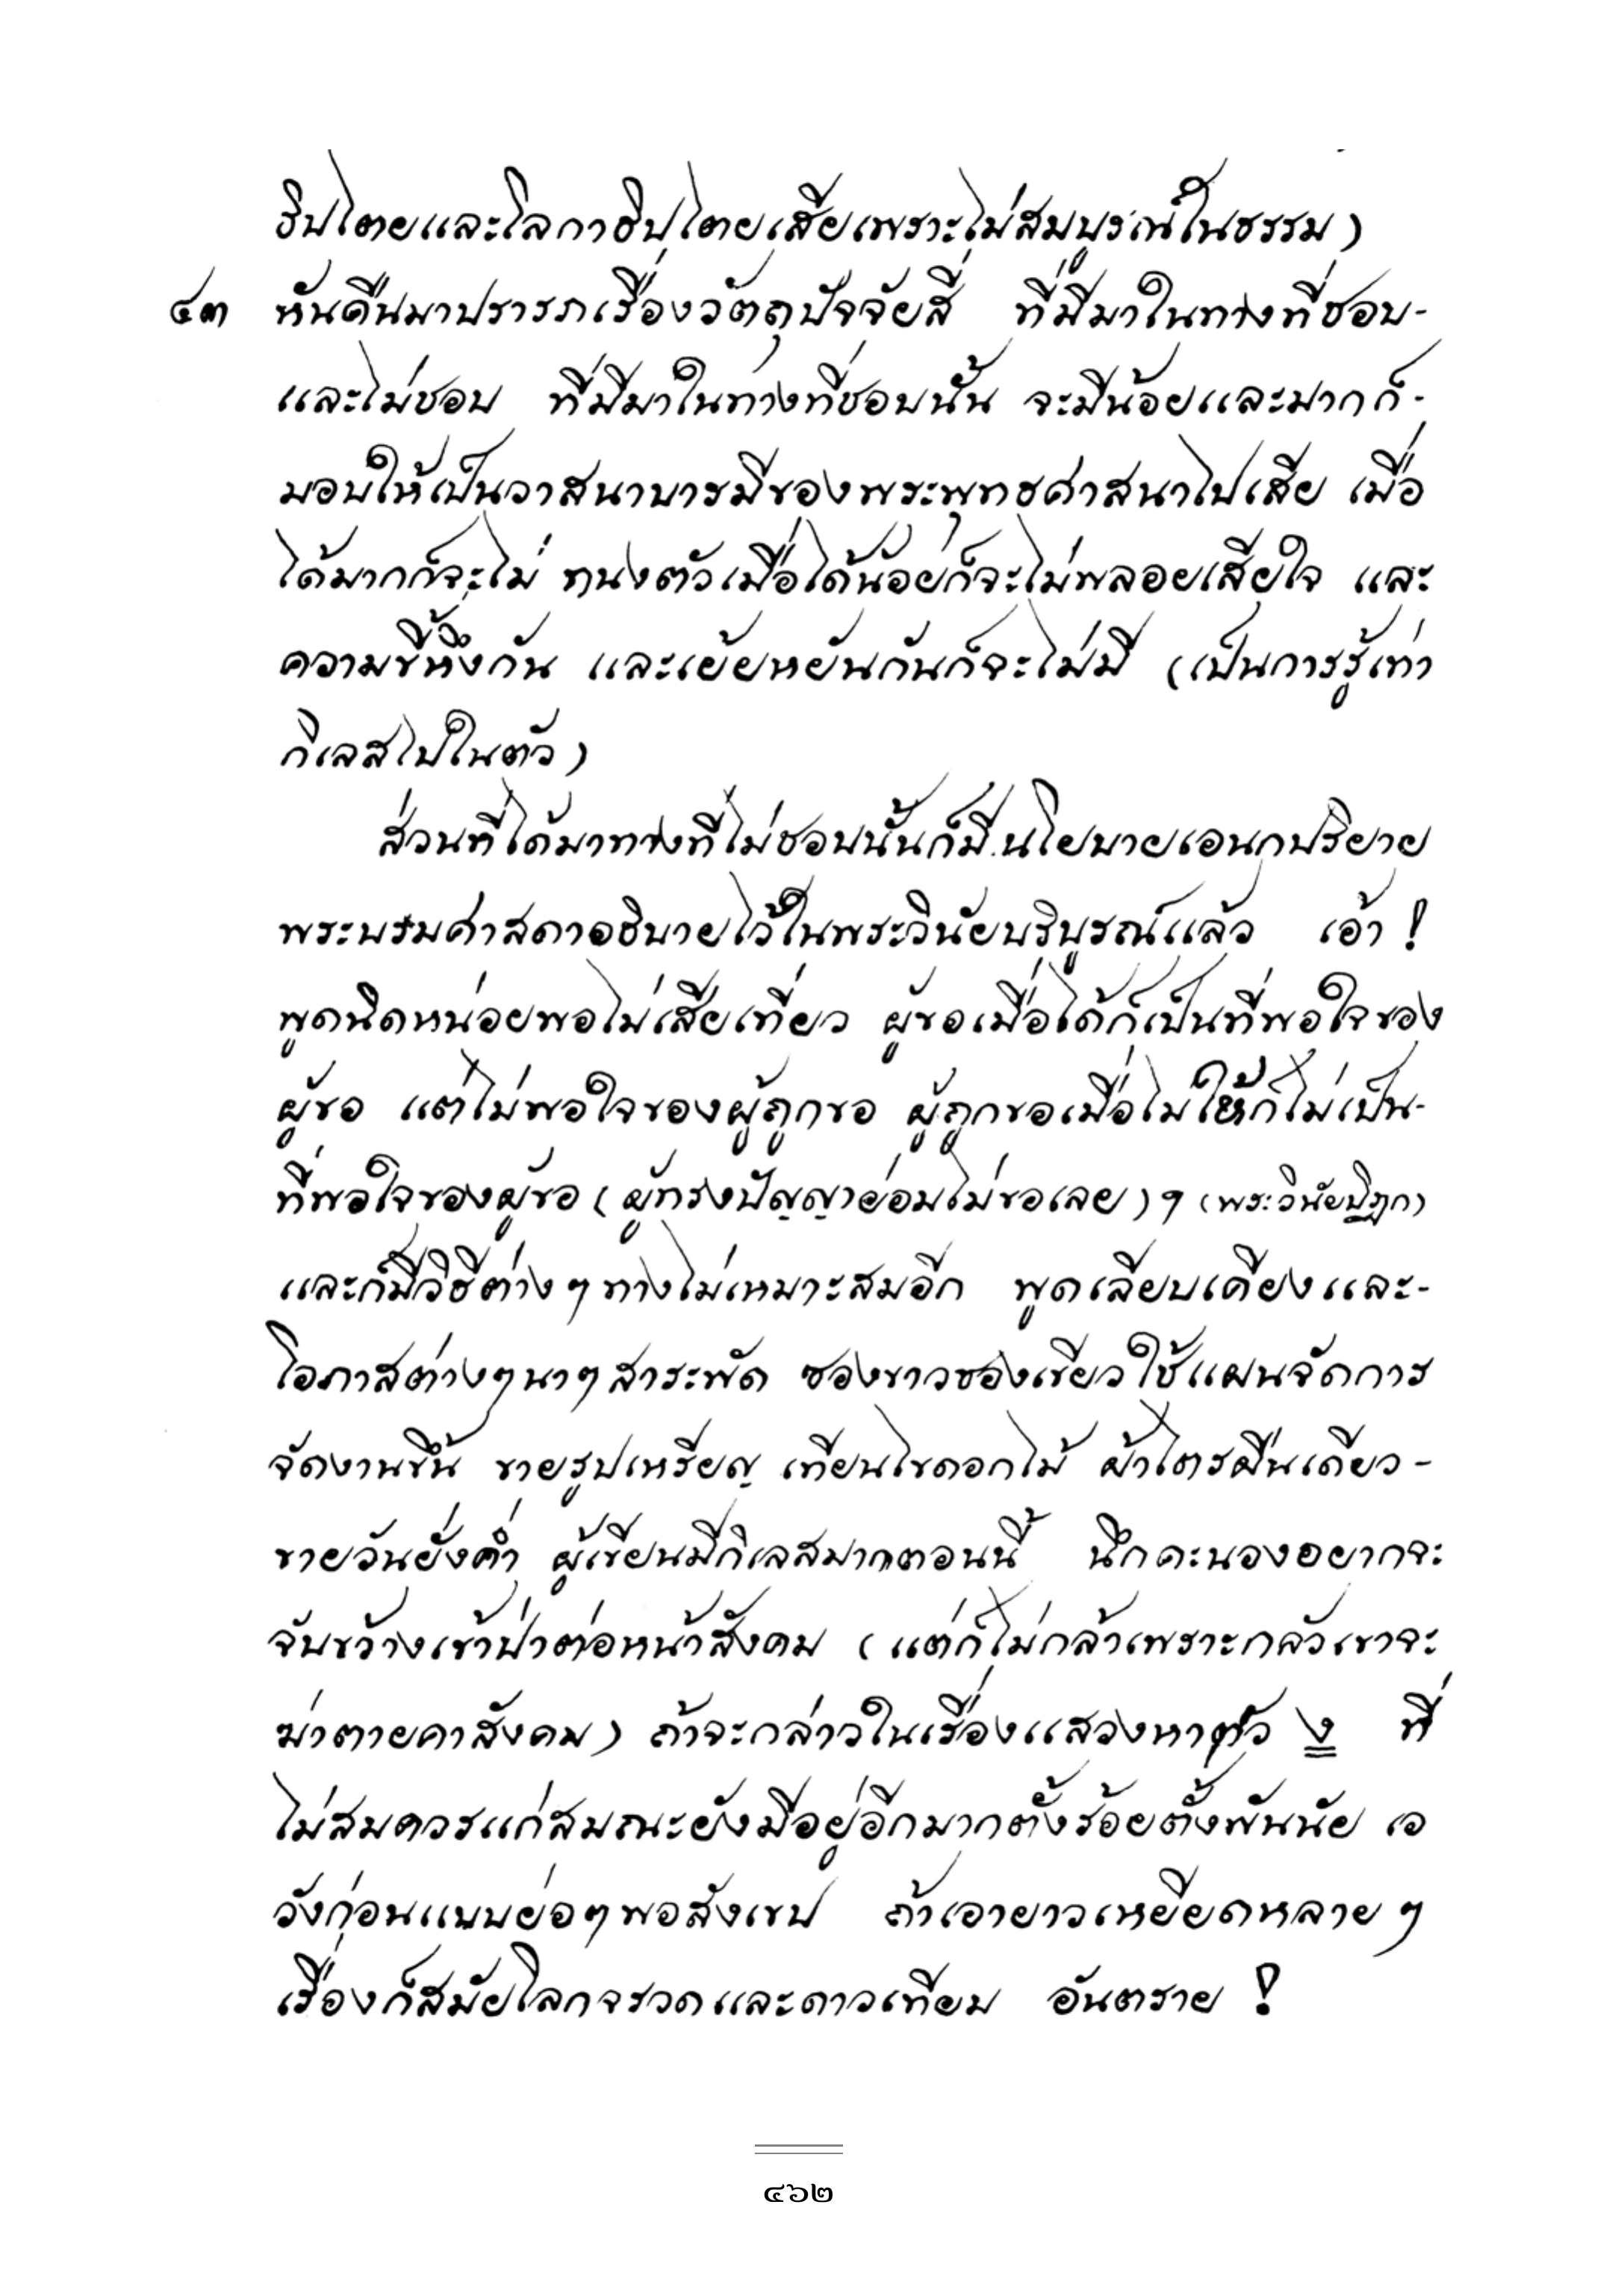 ธิปไตยและโลกาธิปไตยเสียเพราะไม่สมบูรณ์ในธรรม)
๔๓ หันคืนมาปรารภเรื่องวัตถุปัจจัยสี่ ที่มีมาในทางที่ชอบ-
และไม่ชอบ ที่มีมาในทางที่ชอบนั้น จะมีน้อยและมากก็-
มอบให้เป็นวาสนาบารมีของพระพุทธศาสนาไปเสีย เมื่อ
ได้มากก็จะไม่ ทนงตัวเมื่อได้น้อยก็จะไม่พลอยเสียใจ และ
ความขี้หึงกัน และเย้ยหยันกันก็จะไม่มี (เป็นการรู้เท่า
กิเลสไปในตัว)
ส่วนที่ได้มาทางที่ไม่ชอบนั้นก็มีนโยบายเอนกปริยาย
พระบรมศาสดาอธิบายไว้ในพระวินัยบริบูรณ์แล้ว เอ้า !
พูดนิดหน่อยพอไม่เสียเที่ยว ผู้ขอเมื่อได้ก็เป็นที่พอใจของ
ผู้ขอ แต่ไม่พอใจของผู้ถูกขอ ผู้ถูกขอเมื่อไม่ให้ก็ไม่เป็น-
ที่พอใจของผู้ขอ (ผู้ทรงปัญญาย่อมไม่ขอเลย) ๆ (พระวินัยปิฎก)
และก็มีวิธีต่าง ๆ ทางไม่เหมาะสมอีก พูดเลียบเคียงและ-
โอภาสต่างๆนาๆสาระพัด ซองขาวซองเขียวใช้แผนจัดการ
จัดงานขึ้น ขายรูปเหรียญ เทียนไขดอกไม้ ผ้าไตรผืนเดียว-
ขายวันยั่งค่ำ ผู้เขียนมีกิเลสมากตอนนี้ นึกคะนองอยากจะ
จับขว้างเข้าป่าต่อหน้าสังคม (แต่ก็ไม่กล้าเพราะกลัวเขาจะ
ฆ่าตายคาสังคม) ถ้าจะกล่าวในเรื่องแสวงหาตัว ง ที่
ไม่สมควรแก่สมณะยังมีอยู่อีกมากตั้งร้อยตั้งพันนัย เอ
วังก่อนแบบย่อๆพอสังเขป ถ้าเอายาวเหยียดหลาย ๆ
เรื่องก็สมัยโลกจรวดและดาวเทียม อันตราย !
๔๖๒